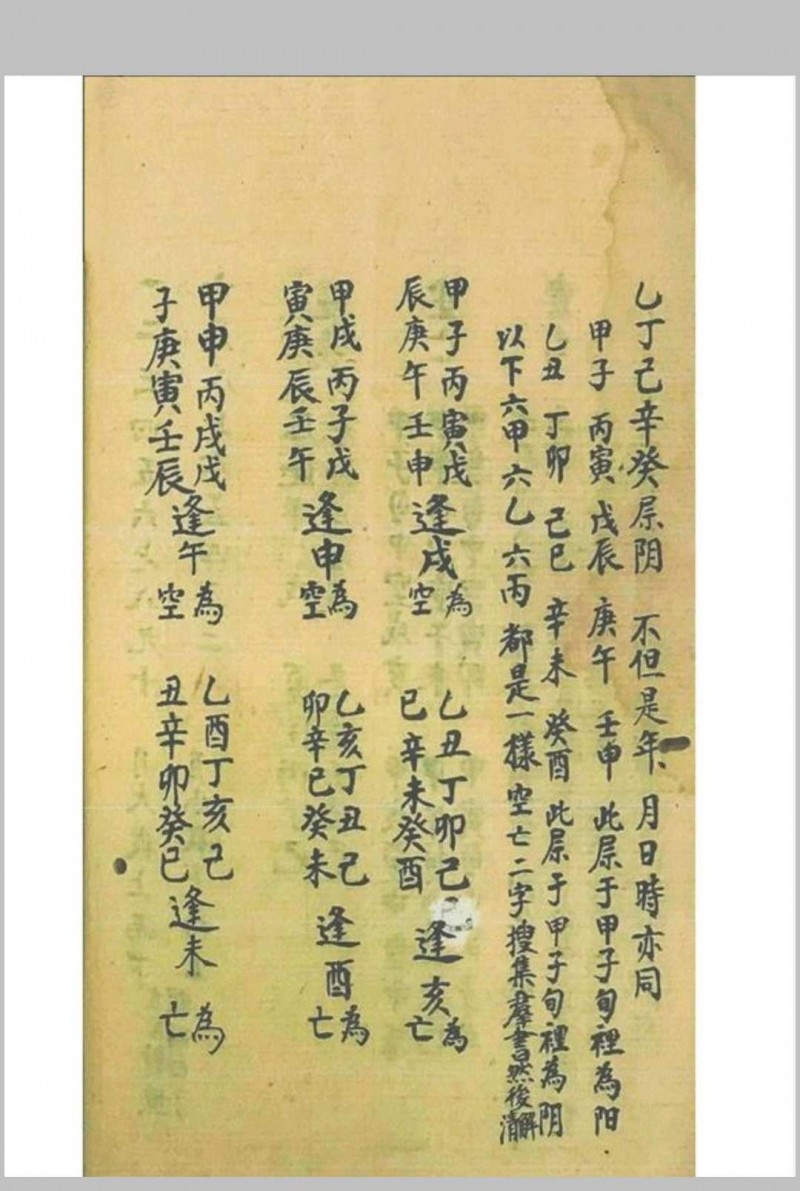 乙丁己辛癸屬阴 不但是年、月日時亦同
甲子 丙寅 戊辰 庚午 壬申 此屬于甲子旬裡為阳
乙丑 丁卯 己巳 辛未 癸酉 此屬于甲子旬裡為阴
以下六甲六乙六丙都是一樣空亡二字搜集羣書然後清解
甲子丙寅戊
辰庚午壬申
逢戌
為空
乙丑丁卯己
巳辛未癸酉
逢亥
為亡
甲戌丙子戊
寅庚辰壬午
逢申
為空
乙亥丁丑己
卯辛巳癸未
逢酉
為亡
甲申丙戌戊
子庚寅壬辰
逢午
為空
乙酉丁亥己
丑辛卯癸巳
逢未
為亡